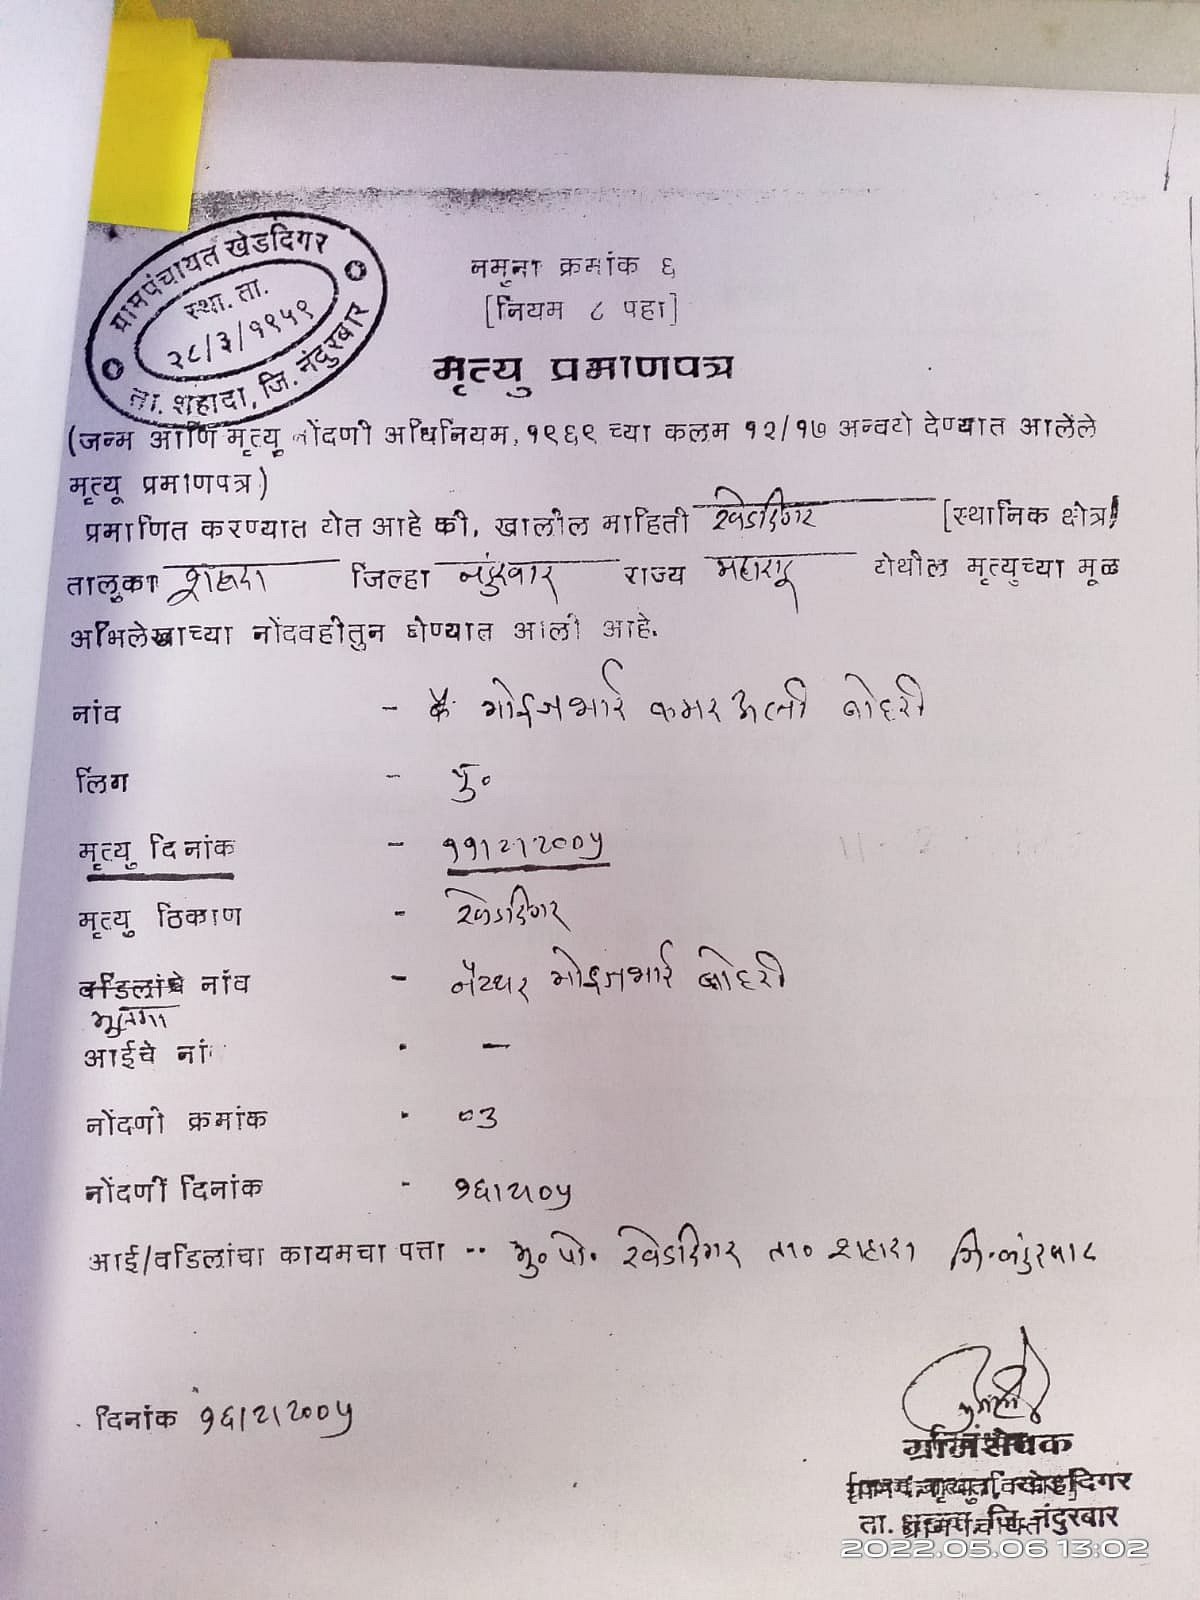 ग्रामपंचायत खेडदिगर
स्था. ता.
२८/३/१९५९
ता. शहादा, जि. नंदुरबार
नमुना क्रमांक ६
[नियम ८ पहा]
मृत्यु प्रमाणपत्र
(जन्म आणि मृत्यु नोंदणी अधिनियम, १९६९ च्या कलम १२/१७ अन्वये देण्यात आलेले
मृत्यू प्रमाणपत्र)
प्रमाणित करण्यात येत आहे की, खालील माहिती खेडदिगर [स्थानिक क्षेत्र]
तालुका शहादा जिल्हा नंदुरबार राज्य महाराष्ट्र येथील मृत्युच्या मूळ
अभिलेखाच्या नोंदवहीतुन घेण्यात आली आहे.
नांव - कै मोईजभाई कमरअली बोहरी
लिंग - पु०
मृत्यु दिनांक - ११/२/२००५
मृत्यु ठिकाण - खेडदिगर
वडिलांचे नांव - मोईजभाई बोहरी
मुलगा
आईचे नां -
नोंदणी क्रमांक - ०३
नोंदणी दिनांक - १६/२/०५
आई/वडिलांचा कायमचा पत्ता -- मु० पो. खेडदिगर ता० शहादा जि. नंदुरबार
दिनांक १६/२/२००५
ग्रामसेवक
खेडदिगर
ता. जि. नंदुरबार
2022.05.06 13:02